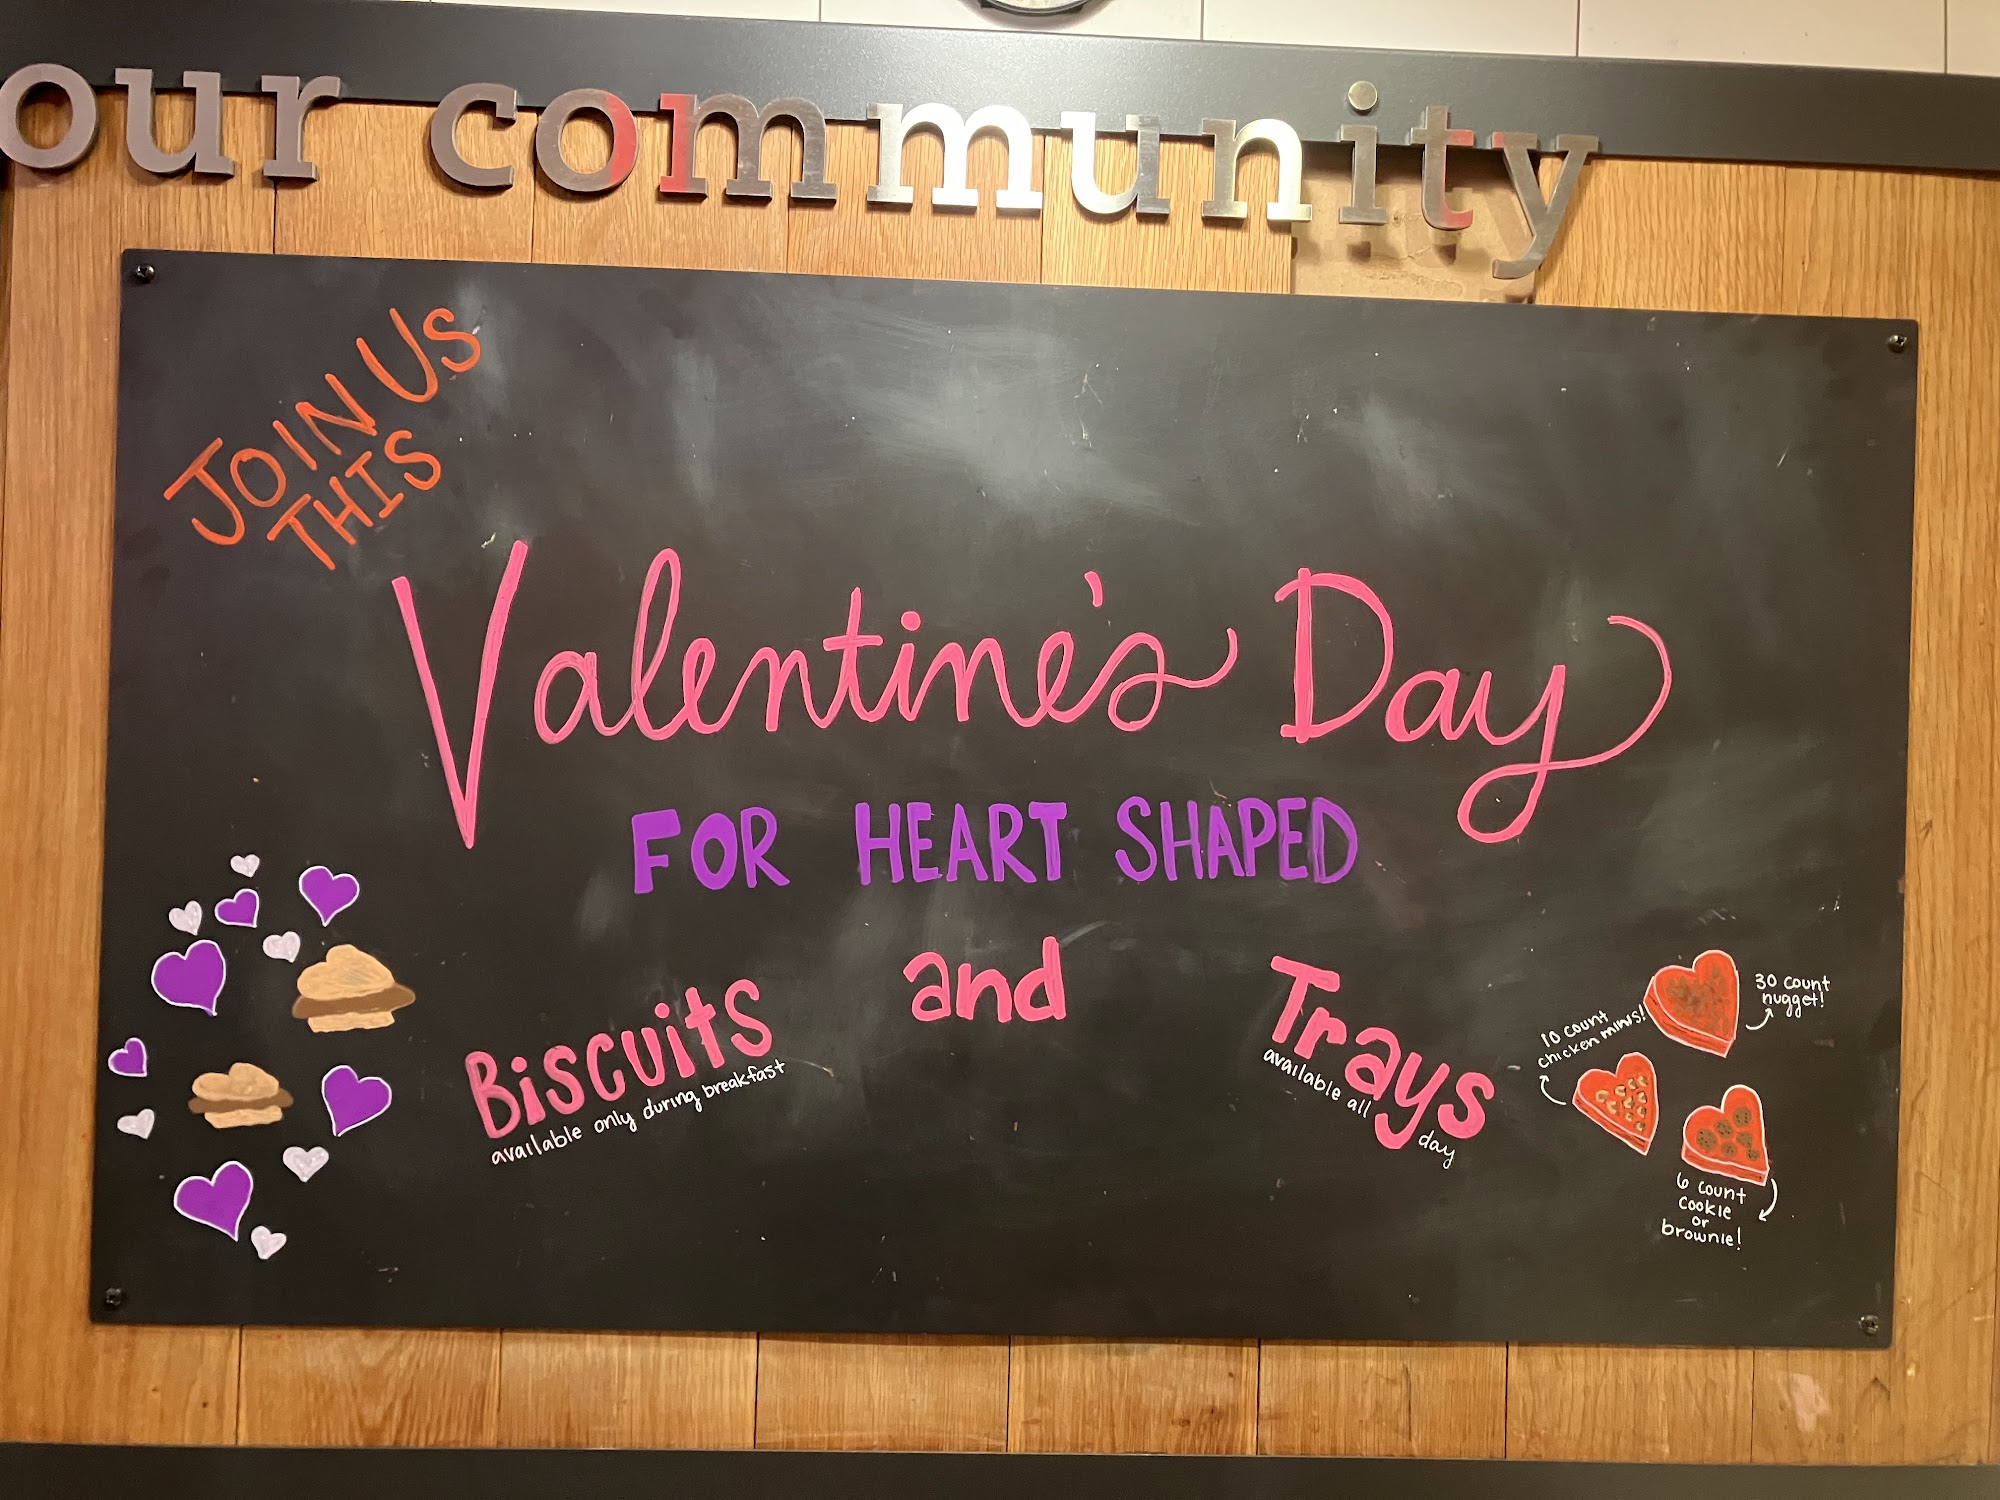 our community
JOIN US
THIS
Valentine's Day
FOR HEART SHAPED
Biscuits and Trays
available only during breakfast
available all day
10 count
chicken minis!
30 count
nugget!
6 count
cookie
or
brownie!